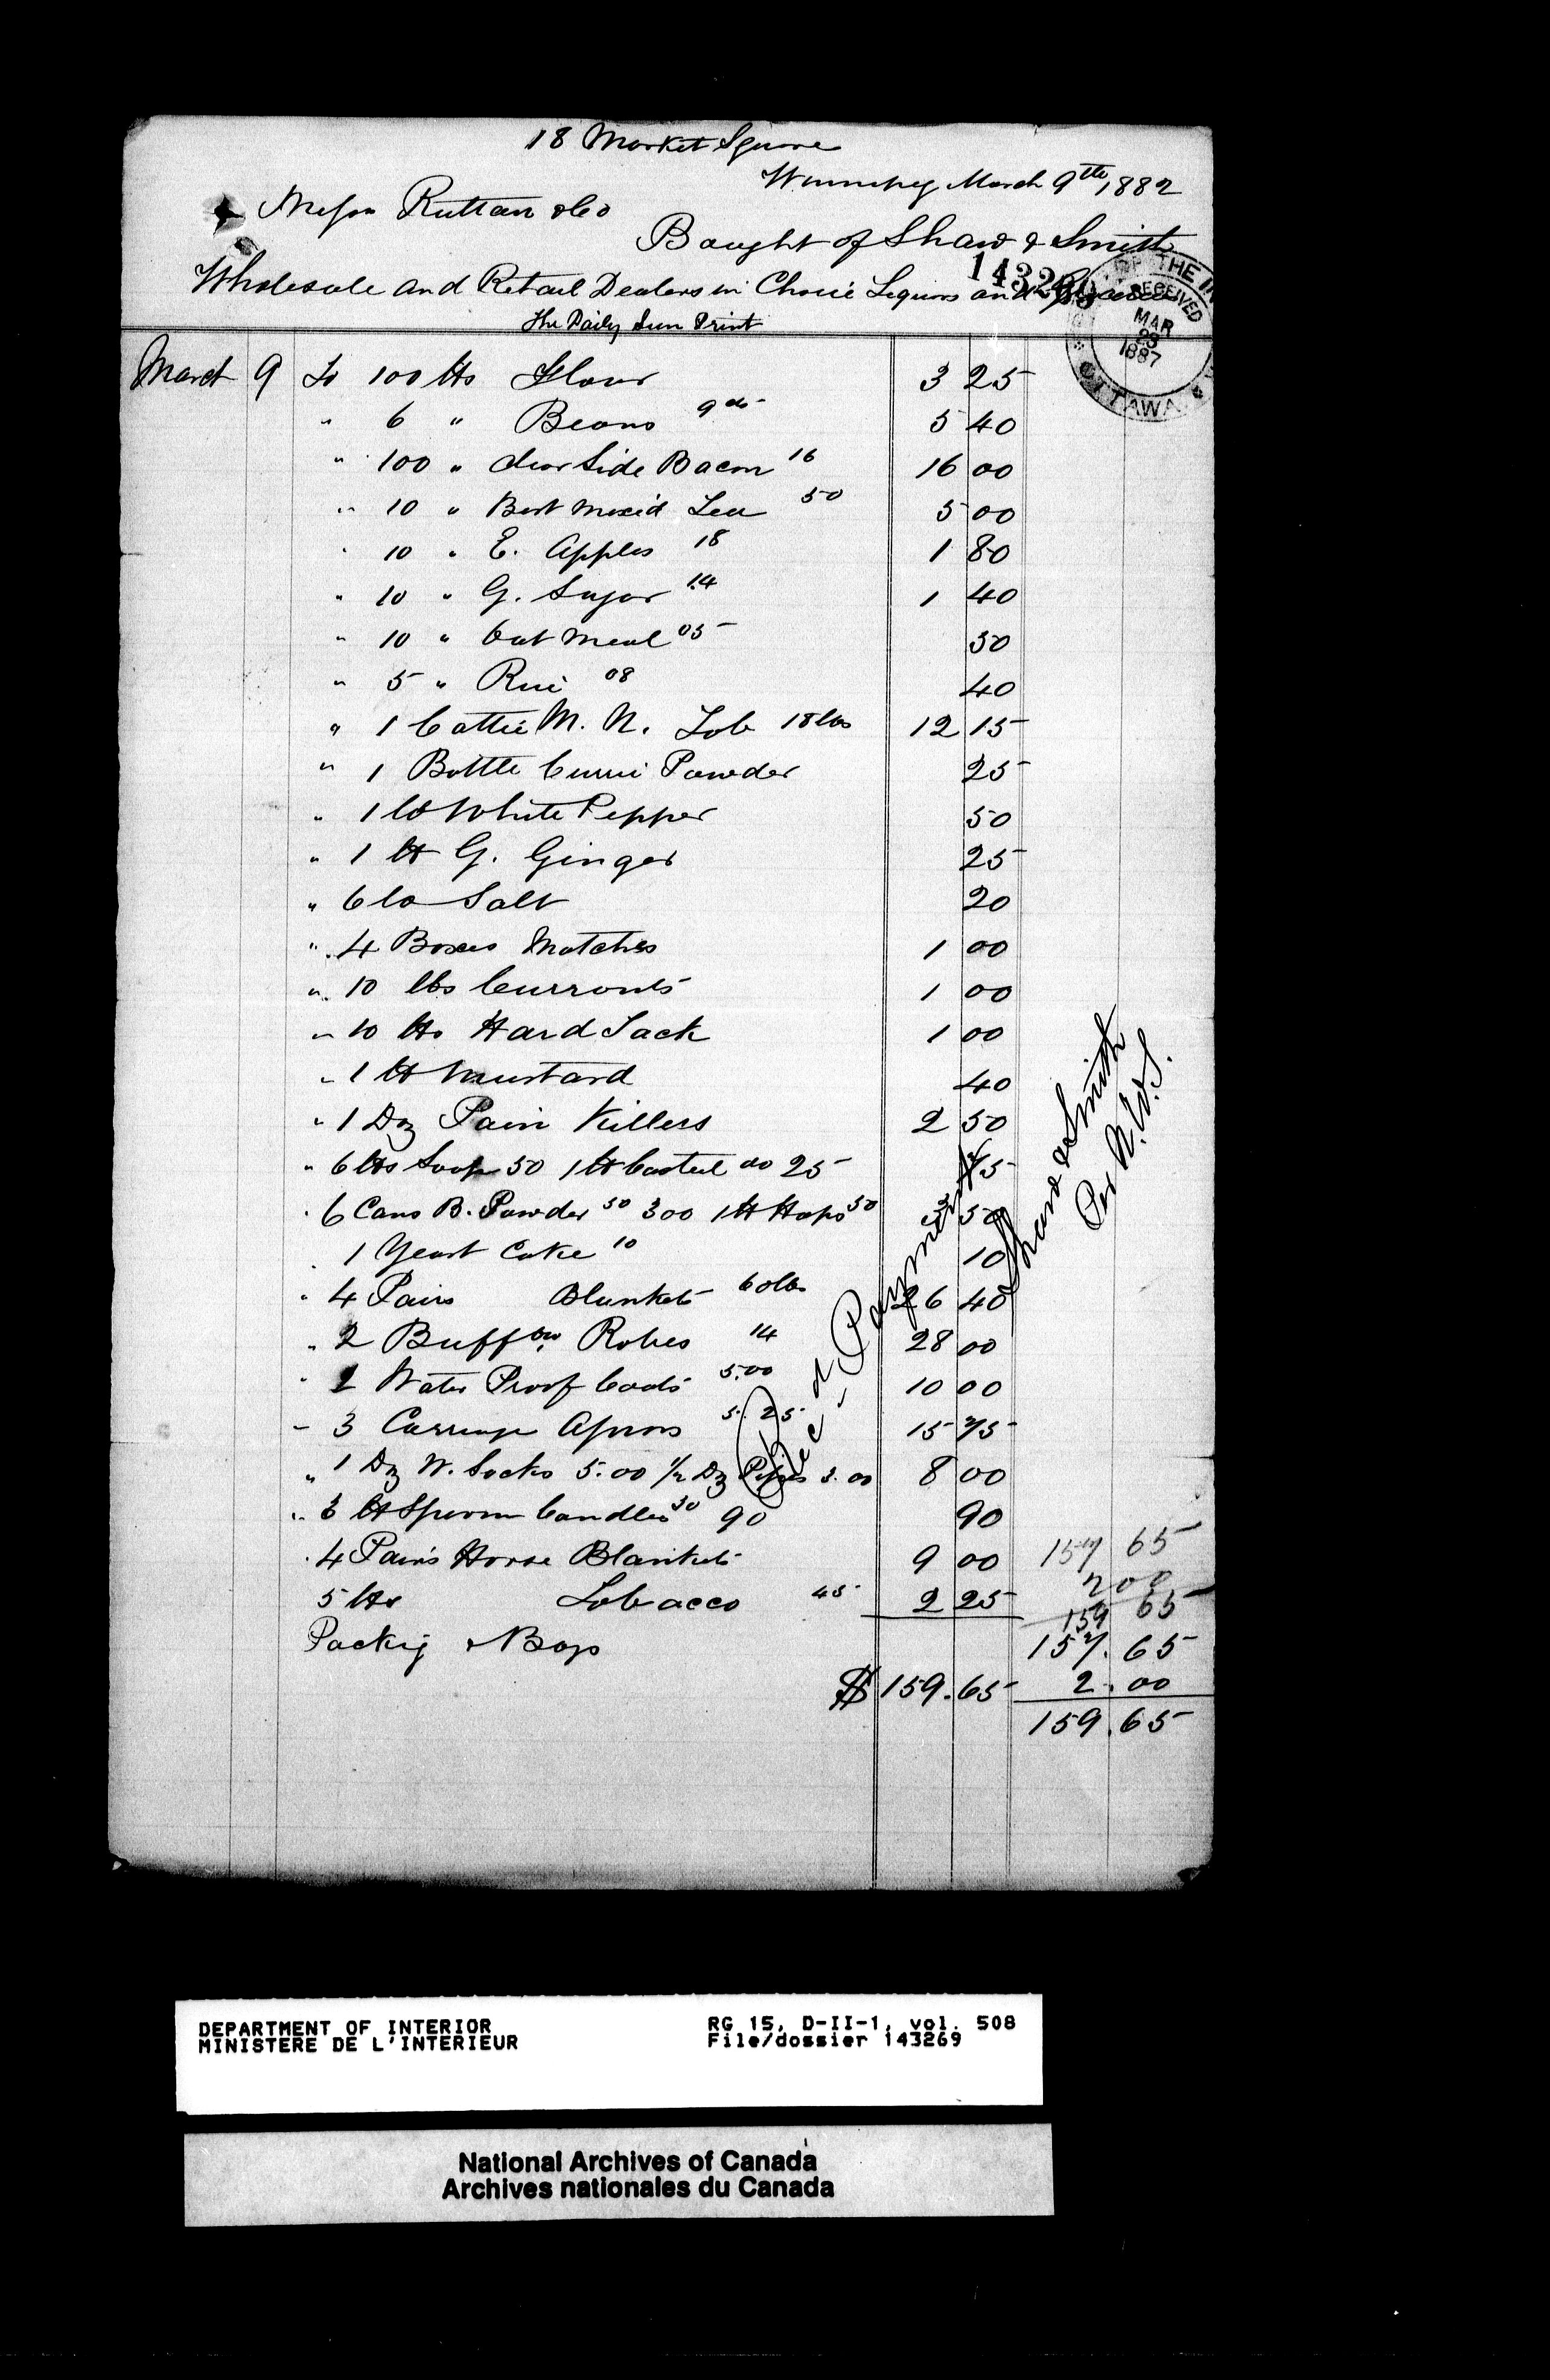 18 Market Square
Winnipeg March 9th, 1882
Messrs Ruttan & Co
Bought of Shaw & Smith
Wholesale and Retail Dealers in Choice Liquors and Groceries
143269
The Daily Sun Print
RECEIVED
MAR
29
1887
OTTAWA
March 9 To 100 lbs Flour 3 25
" 6 " Beans 90 5 40
" 100 " Clear Side Bacon 16 16 00
" 10 " Best Mixed Tea 50 5 00
" 10 " E. Apples 18 1 80
" 10 " G. Sugar 14 1 40
" 10 " Oat Meal 05 50
" 5 " Rice 08 40
" 1 Cattie M. N. Tob 18 lbs 12 15
" 1 Bottle Currie Powder 25
" 1 lb White Pepper 50
" 1 lb G. Ginger 25
" 6 lb Salt 20
" 4 Boxes Matches 1 00
" 10 lbs Currants 1 00
" 10 lbs Hard Tack 1 00
" 1 lb Mustard 40
" 1 Doz Pain Killers 2 50
" 6 lbs Soap 50 1 lb Casteel do 25 75
" 6 Cans B. Powder 50 300 1 lb Hops 50 3 50
1 Yeast Cake 10 10
" 4 Pairs Blankets 60 lbs 26 40
" 2 Buffalo Robes 14 28 00
" 2 Water Proof Coats 5.00 10 00
" 3 Carriage Aprons 5.25 15 75
" 1 Doz W. Socks 5.00 1/2 Doz Pipes 3.00 8 00
" 3 lb Sperm Candles 30 90 90
" 4 Pairs Horse Blankets 9 00
5 lbs Tobacco 45 2 25
Packig & Bags
$159.65
157 65
2 00
159 65
157.65
2.00
159.65
Rec'd Payment
Shaw & Smith
Per N.W.S.
DEPARTMENT OF INTERIOR
MINISTERE DE L'INTERIEUR
RG 15, D-II-1, vol. 508
File/dossier 143269
National Archives of Canada
Archives nationales du Canada